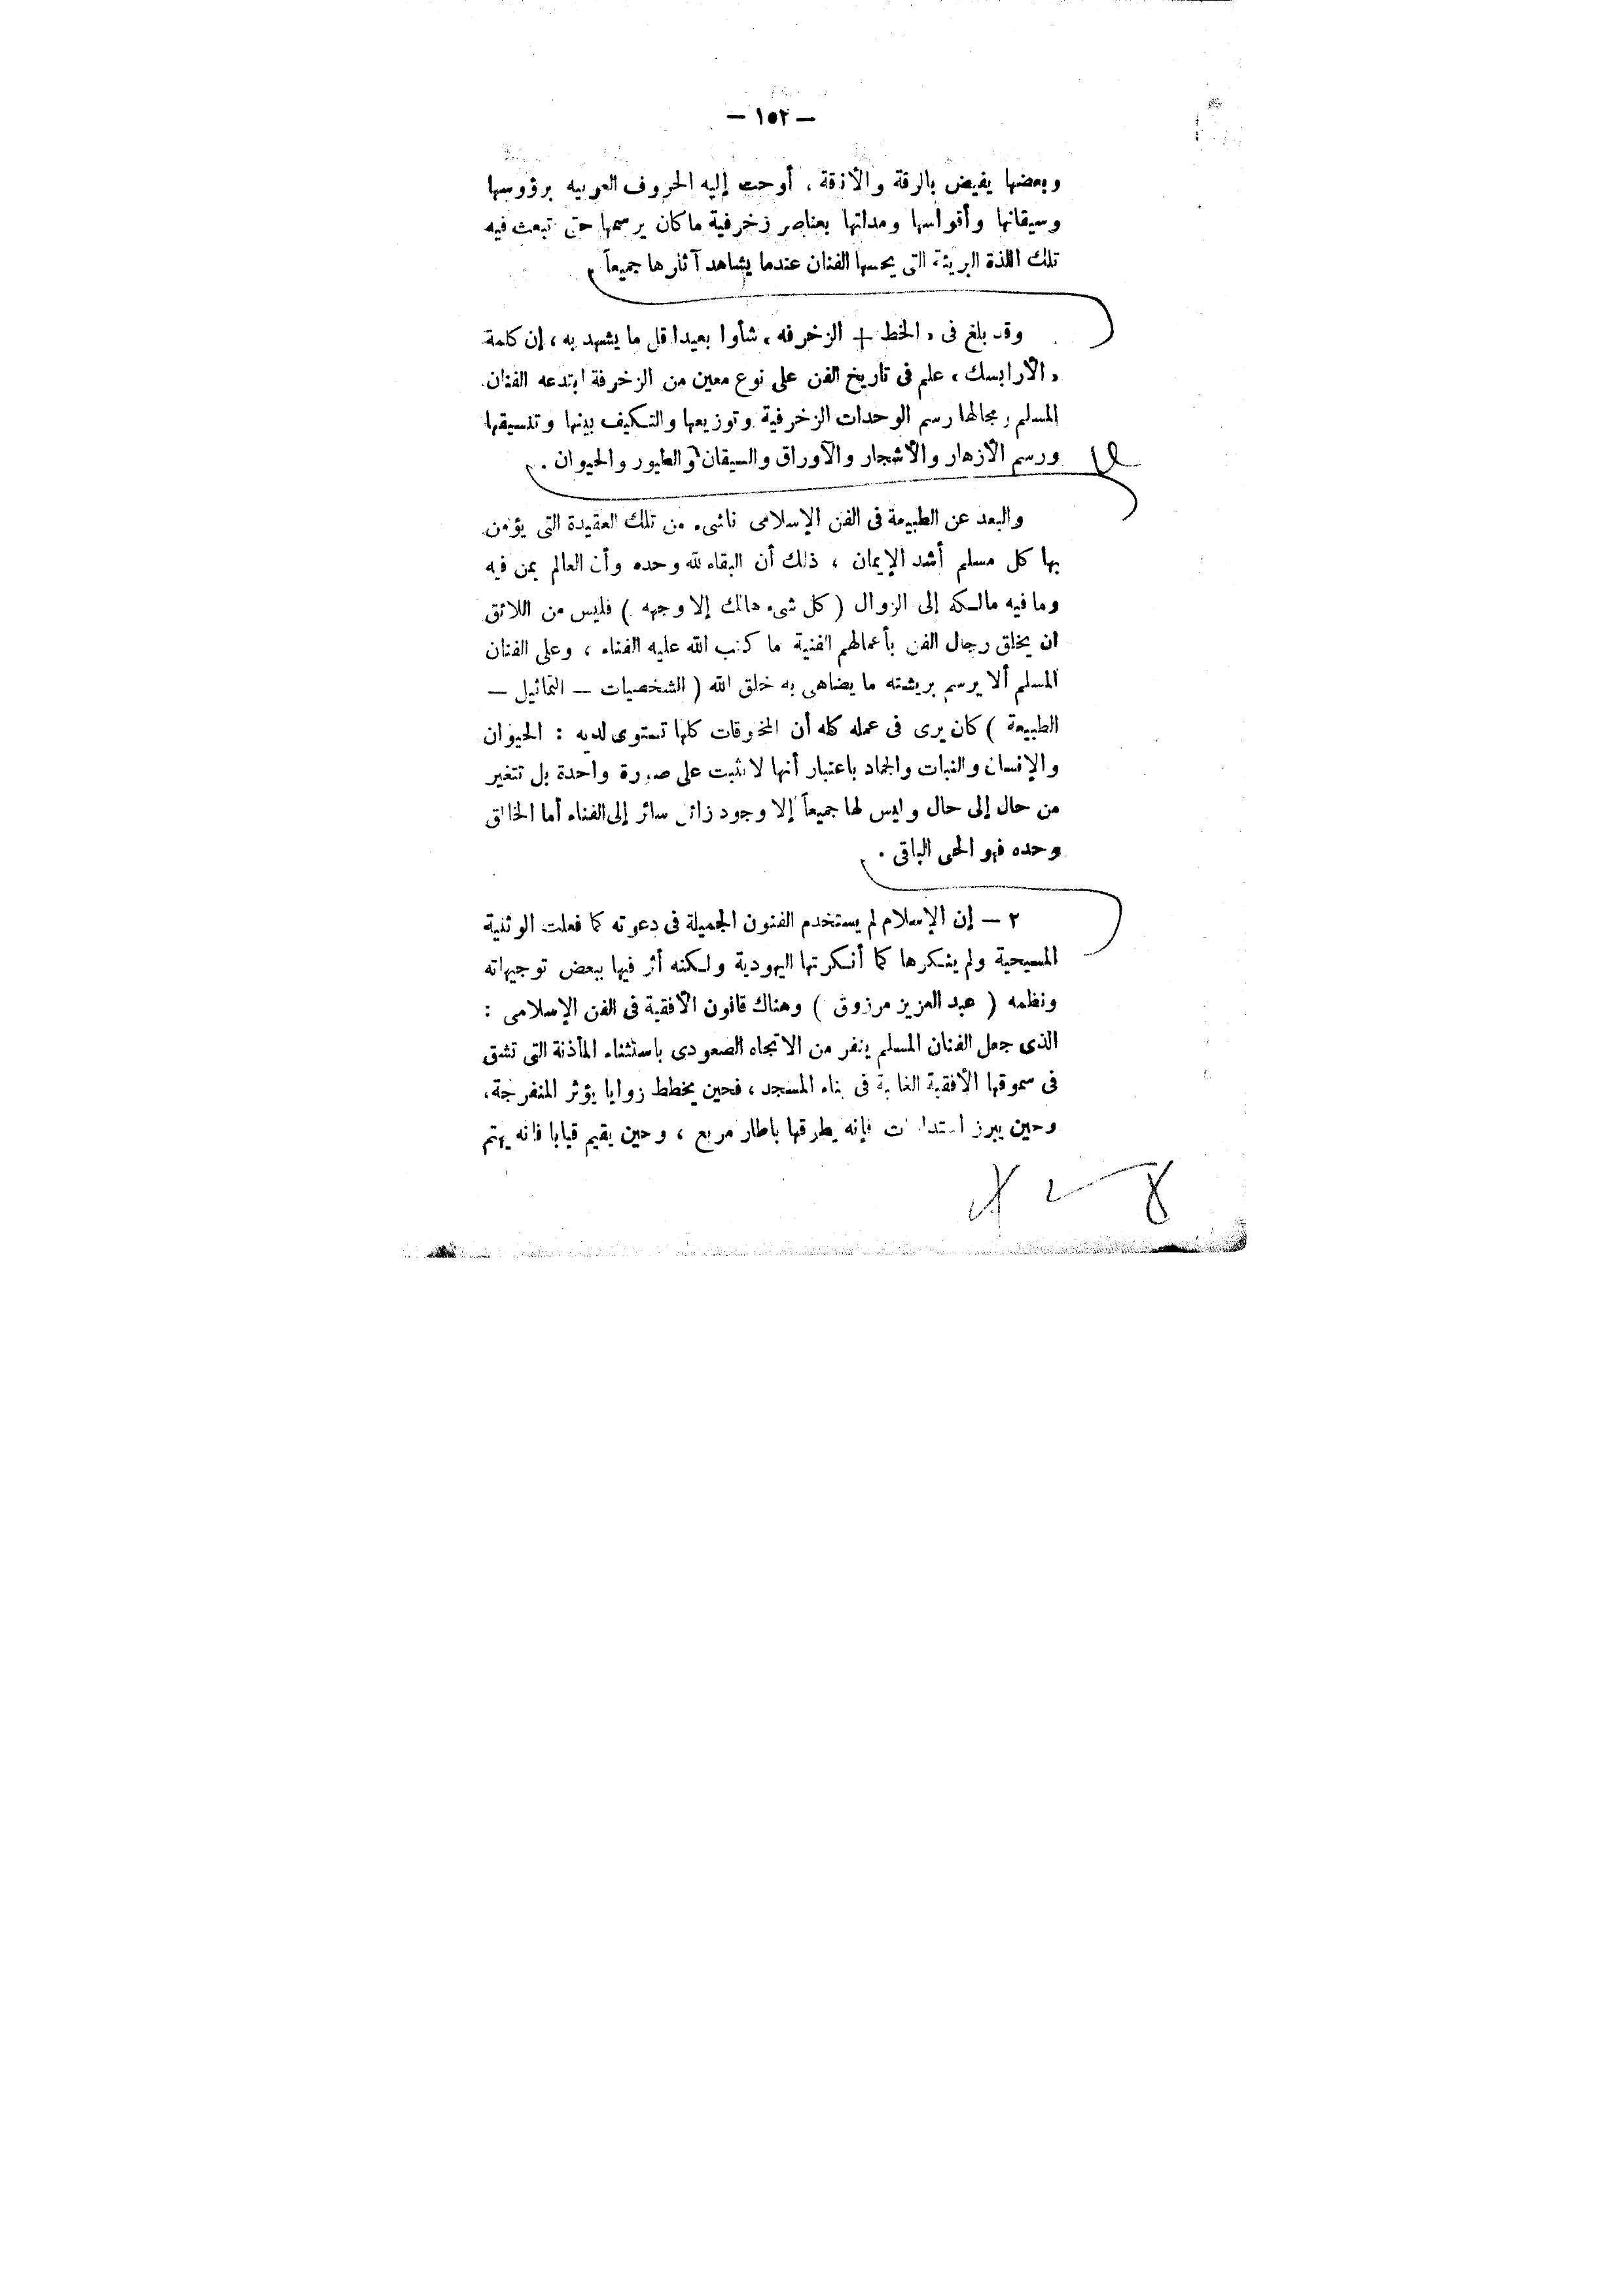 — ١٥٢ —
وبعضها يفيض بالرقة والأناقة، أوحت إليه الحروف العربيه برؤوسها
وسيقانها وأقواسها ومداتها بعناصر زخرفية ماكان يرسمها حتى تبعث فيه
تلك اللذة البريئة التى يحسها الفنان عندما يشاهد آثارها جميعاً
وقد بلغ فى «الخط + الزخرفه» شأوا بعيدا قل ما يشهد به، إن كلمة
«الأرابسك» علم فى تاريخ الفن على نوع معين من الزخرفة ابتدعه الفنان
المسلم ومجالها رسم الوحدات الزخرفية وتوزيعها والتكيف بينها وتنسيقها
ورسم الأزهار والأشجار والأوراق والسيقان والطيور والحيوان .
والبعد عن الطبيعة فى الفن الإسلامى ناشىء من تلك العقيدة التى يؤمن
بها كل مسلم أشد الإيمان ، ذلك أن البقاء لله وحده وأن العالم بمن فيه
وما فيه مآلكه إلى الزوال ( كل شىء هالك إلا وجهه ) فليس من اللائق
ان يخلق رجال الفن بأعمالهم الفنية ما كتب الله عليه الفناء ، وعلى الفنان
المسلم ألا يرسم بريشته ما يضاهى به خلق الله ( الشخصيات — التماثيل —
الطبيعة ) كان يرى فى عمله كله أن المخلوقات كلها تستوى لديه : الحيوان
والإنسان والنبات والجماد باعتبار أنها لا تثبت على صورة واحدة بل تتغير
من حال إلى حال وليس لها جميعاً إلا وجود زائل سائر إلى الفناء أما الخالق
وحده فهو الحى الباقى .
٢ — إن الإسلام لم يستخدم الفنون الجميلة فى دعوته كما فعلت الوثنية
المسيحية ولم ينكرها كما أنكرتها اليهودية ولكنه أثر فيها ببعض توجيهاته
ونظمه ( عبد العزيز مرزوق ) وهناك قانون الأفقية فى الفن الإسلامى :
الذى جعل الفنان المسلم ينفر من الاتجاه الصعودى باستثناء المأذنة التى تشق
فى سموقها الأفقية الغالبة فى بناء المسجد ، فحين يخطط زوايا يؤثر المنفرجة،
وحين يبرز استدارات فإنه يطرقها باطار مربع ، وحين يقيم قبابا فانه يهتم